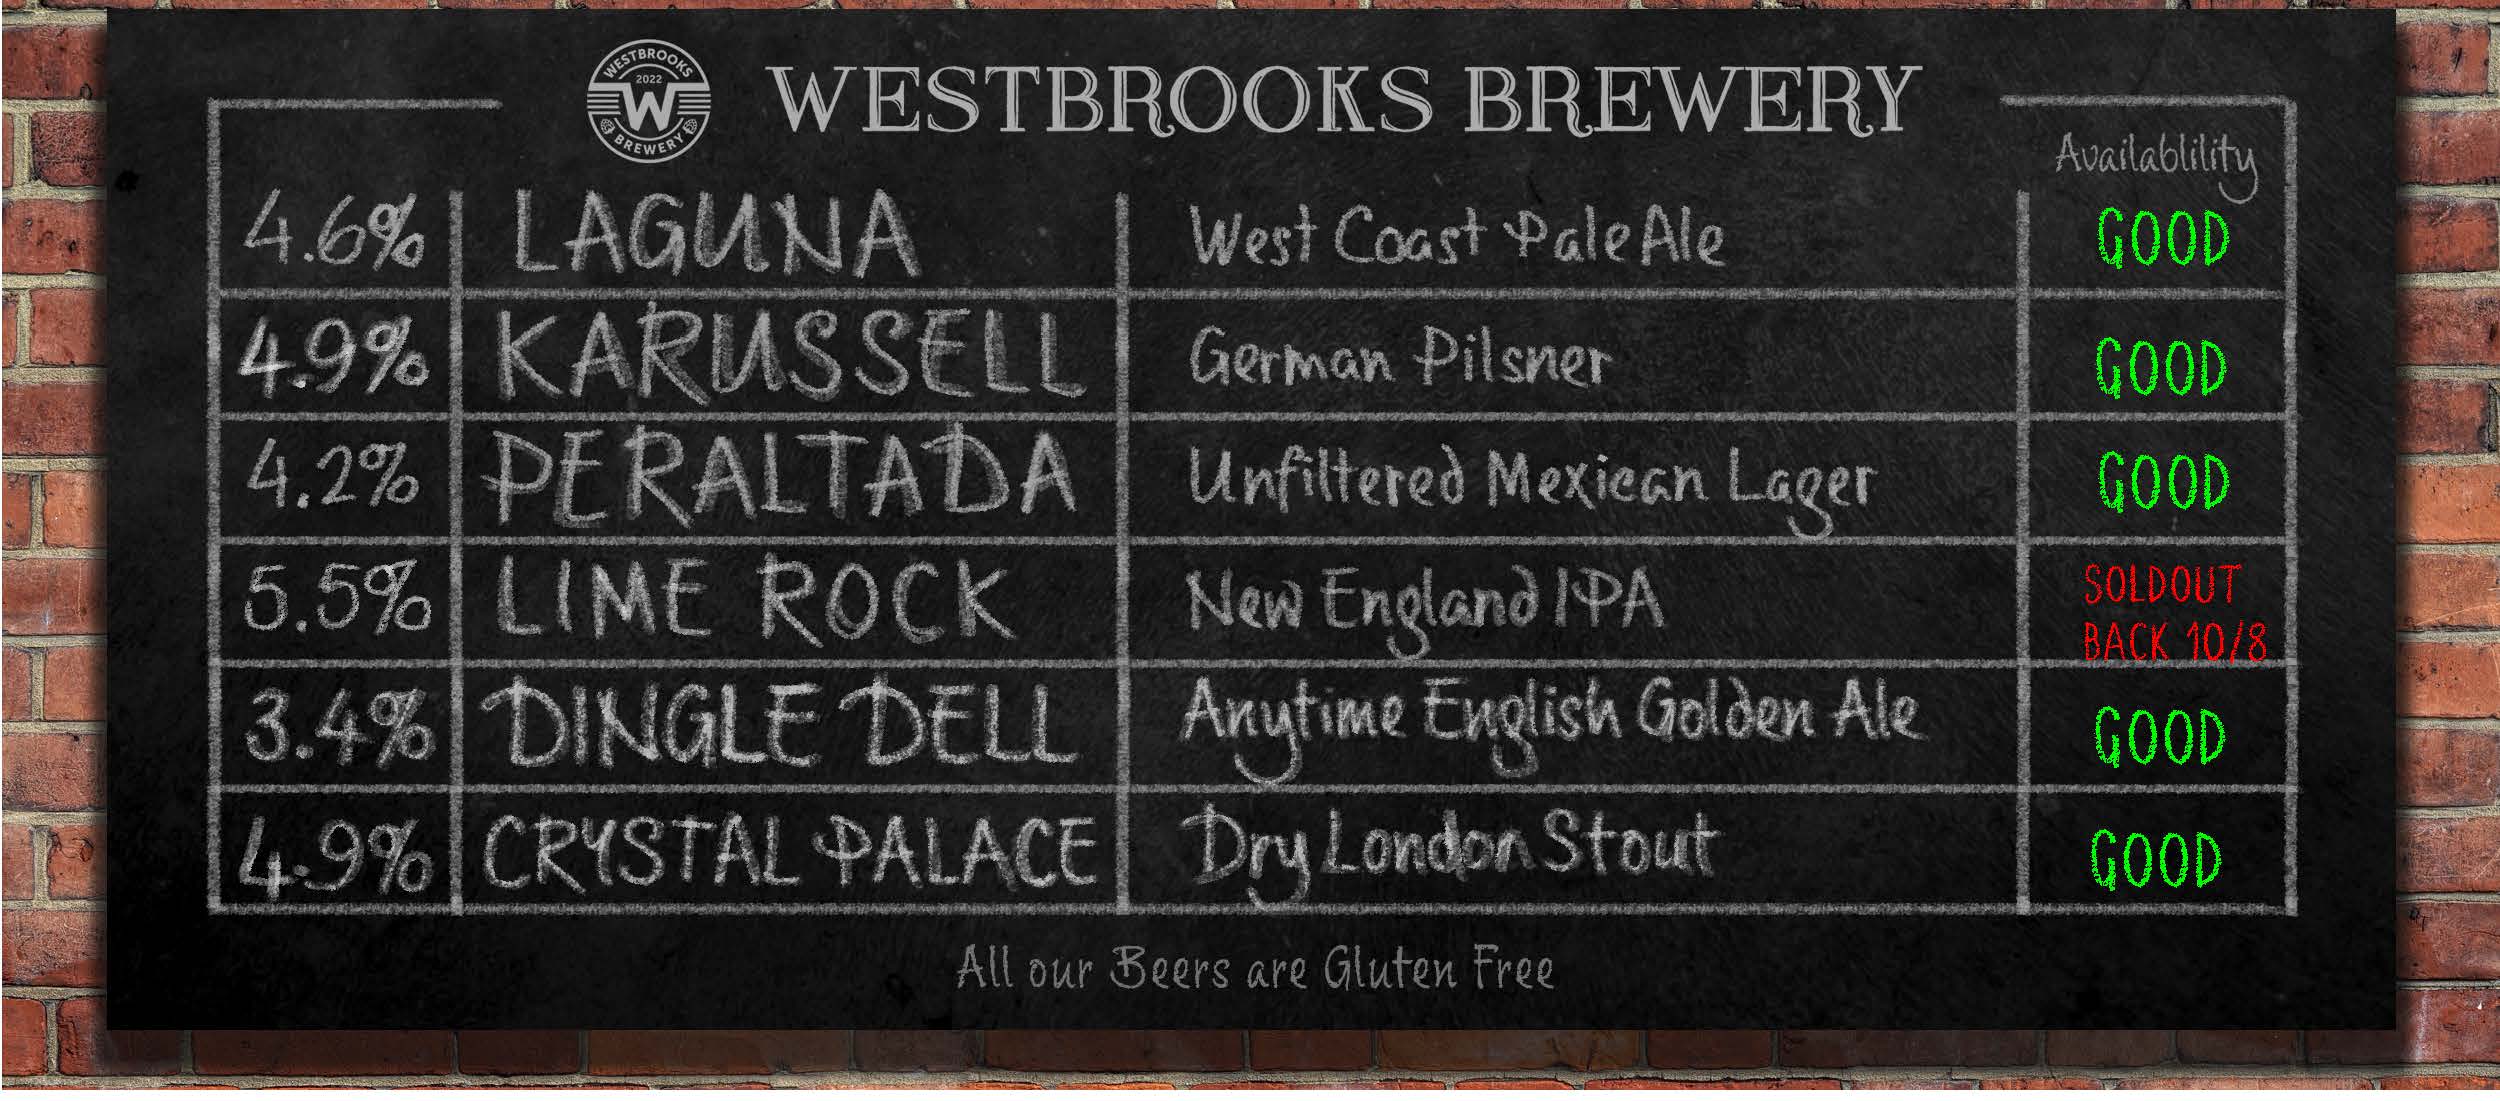 WESTBROOKS
2022
W
BREWERY
WESTBROOKS BREWERY
Availablility
4.6% LAGUNA West Coast Pale Ale GOOD
4.9% KARUSSELL German Pilsner GOOD
4.2% PERALTADA Unfiltered Mexican Lager GOOD
5.5% LIME ROCK New England IPA SOLDOUT
BACK 10/8
3.4% DINGLE DELL Anytime English Golden Ale GOOD
4.9% CRYSTAL PALACE Dry London Stout GOOD
All our Beers are Gluten Free